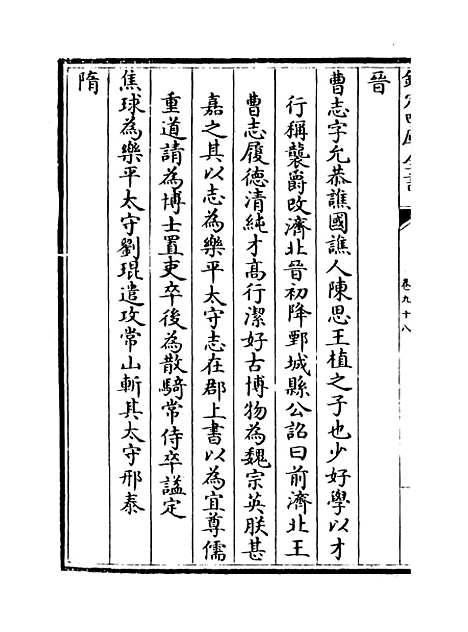 欽定四庫全書
卷九十八
晉
曹志字允恭譙國譙人陳思王植之子也少好學以才
行稱襲爵改濟北晉初降鄄城縣公詔曰前濟北王
曹志履德清純才高行潔好古博物為魏宗英朕甚
嘉之其以志為樂平太守志在郡上書以為宜尊儒
重道請為博士置吏卒後為散騎常侍卒諡定
焦球為樂平太守劉琨遣攻常山斬其太守邢泰
隋